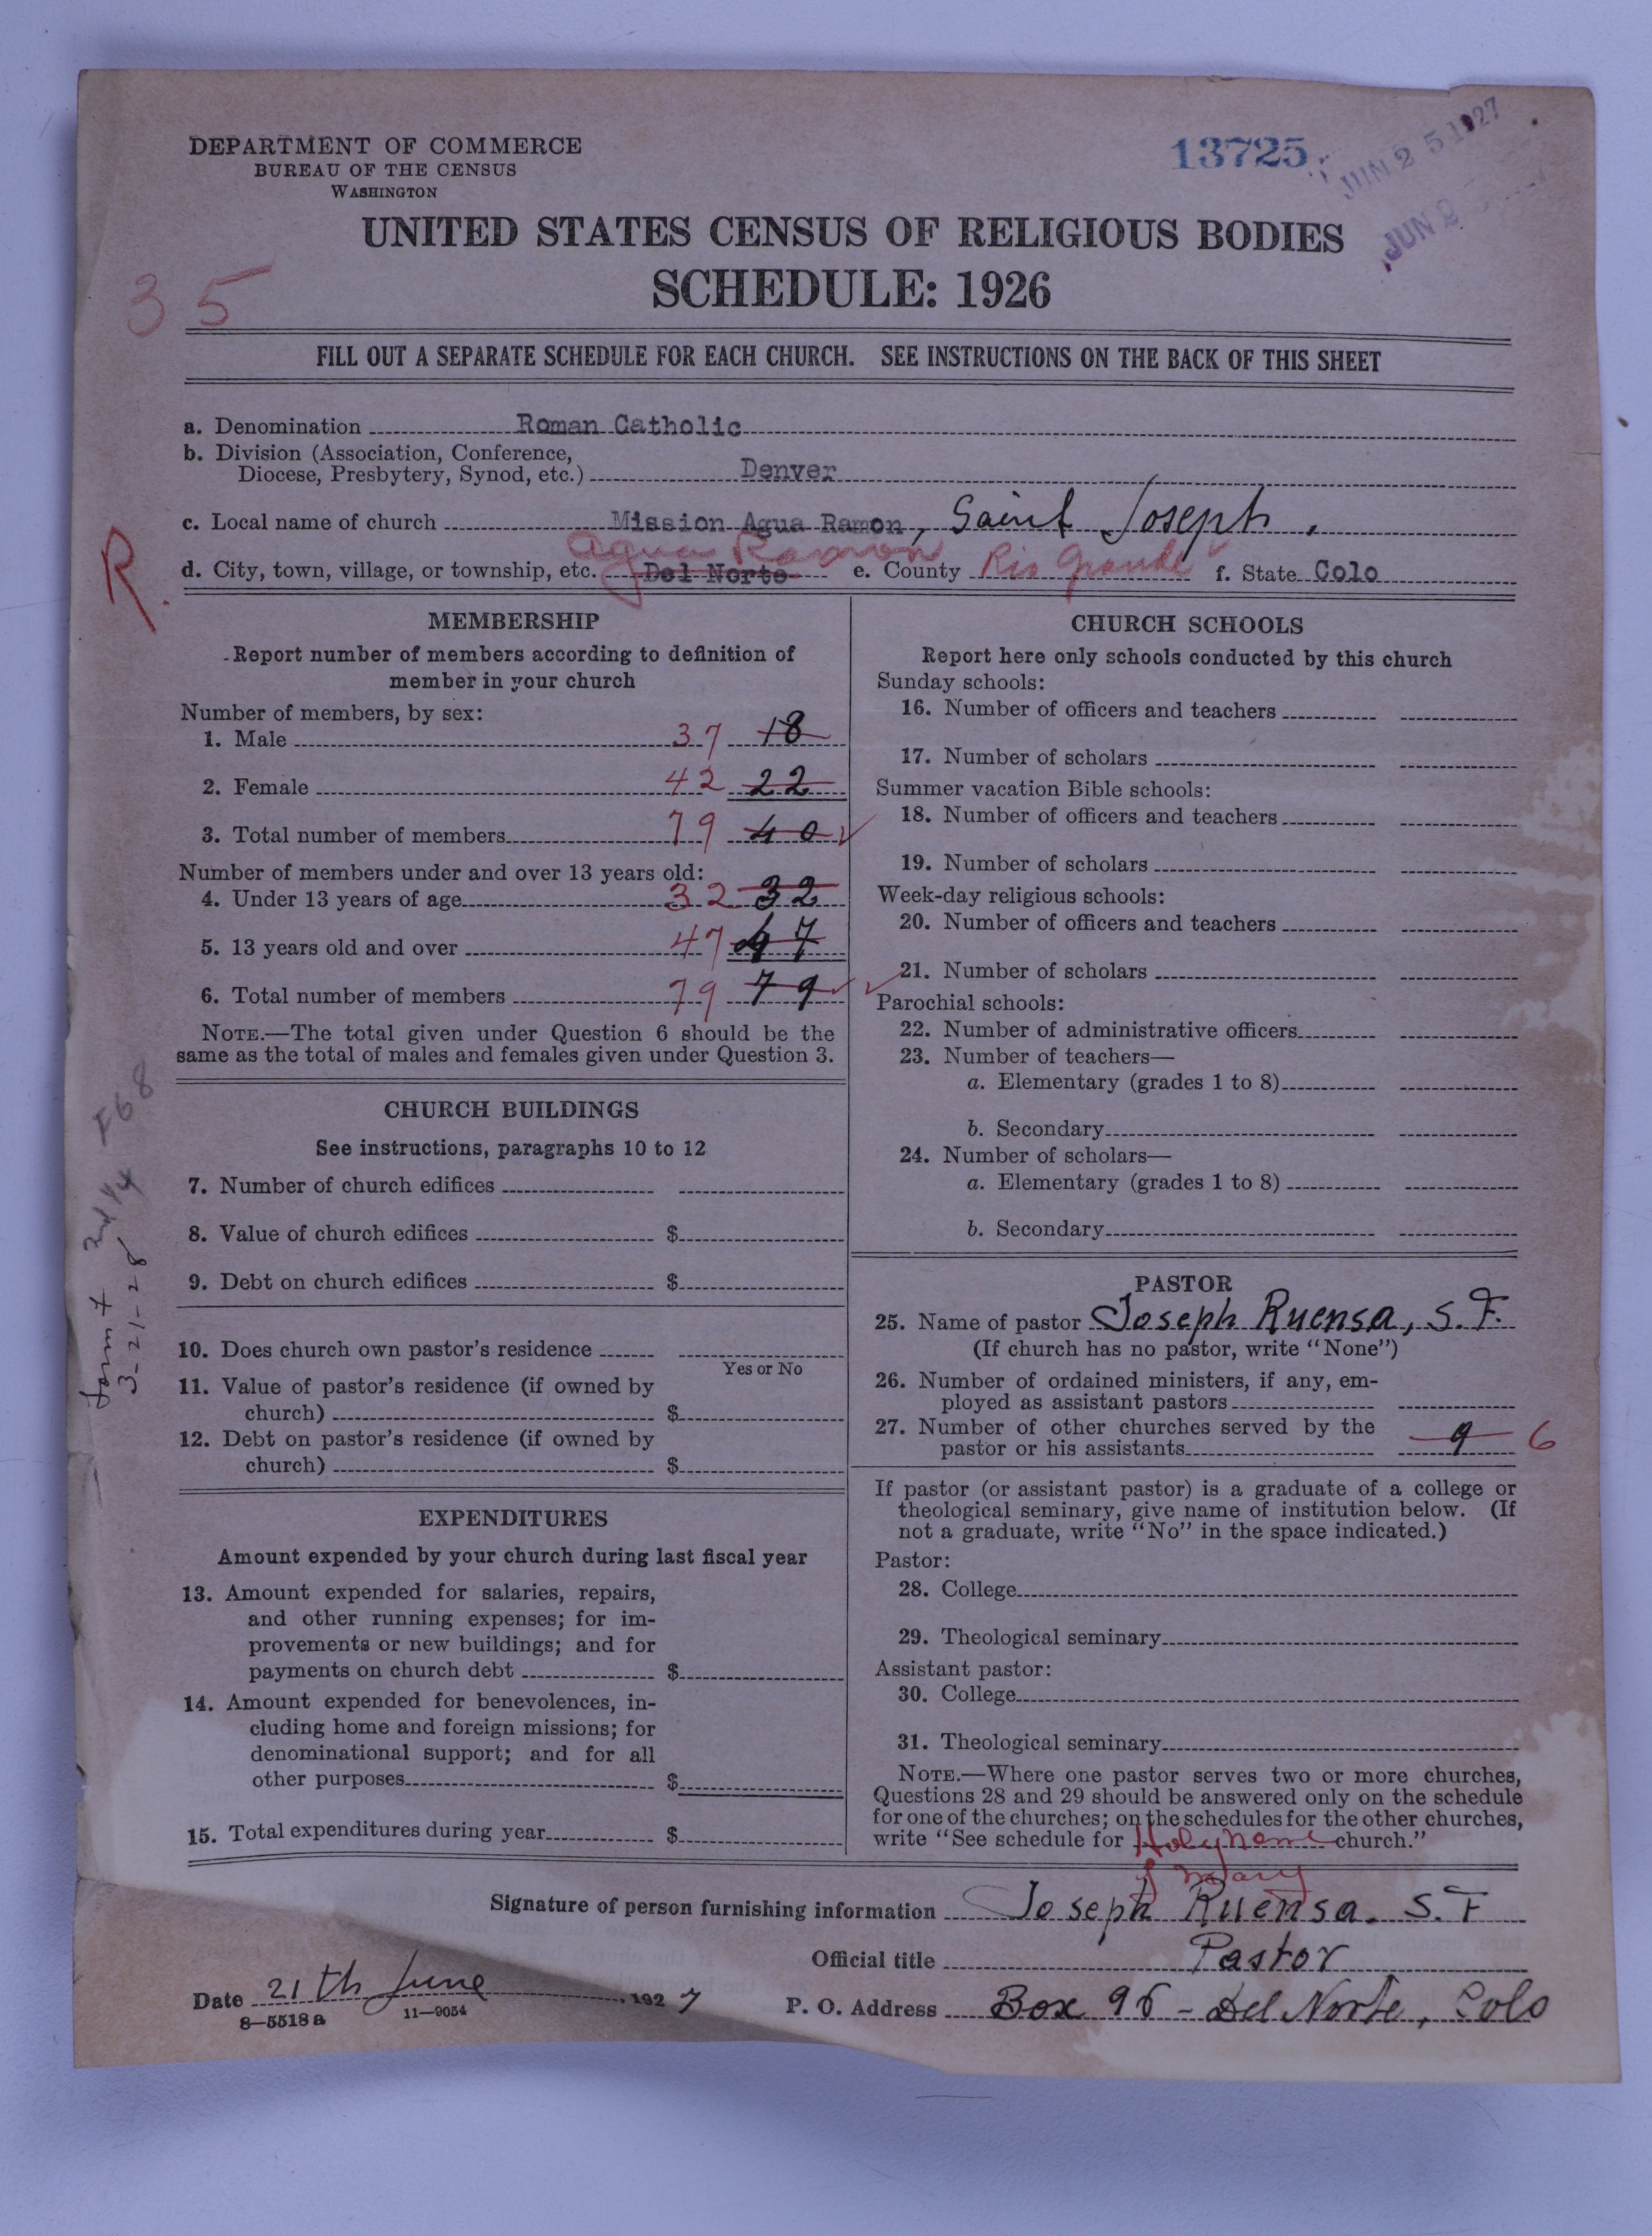 DEPARTMENT OF COMMERCE
BUREAU OF THE CENSUS
WASHINGTON
13725
JUN 25 1927
JUN 2
UNITED STATES CENSUS OF RELIGIOUS BODIES
SCHEDULE: 1926
35
FILL OUT A SEPARATE SCHEDULE FOR EACH CHURCH. SEE INSTRUCTIONS ON THE BACK OF THIS SHEET
a. Denomination Roman Catholic
b. Division (Association, Conference,
Diocese, Presbytery, Synod, etc.) Denver
c. Local name of church Mission Agua Ramon, Saint Joseph.
Agua Ramon
R.
d. City, town, village, or township, etc. Del Norte e. County Rio Grande f. State Colo
MEMBERSHIP
Report number of members according to definition of
member in your church
Number of members, by sex:
1. Male 37 18
2. Female 42 22
3. Total number of members 79 40
Number of members under and over 13 years old:
4. Under 13 years of age 32 32
5. 13 years old and over 47 47
6. Total number of members 79 79
NOTE.—The total given under Question 6 should be the
same as the total of males and females given under Question 3.
CHURCH BUILDINGS
See instructions, paragraphs 10 to 12
7. Number of church edifices
8. Value of church edifices $
9. Debt on church edifices $
10. Does church own pastor's residence
Yes or No
11. Value of pastor's residence (if owned by
church) $
12. Debt on pastor's residence (if owned by
church) $
EXPENDITURES
Amount expended by your church during last fiscal year
13. Amount expended for salaries, repairs,
and other running expenses; for im-
provements or new buildings; and for
payments on church debt $
14. Amount expended for benevolences, in-
cluding home and foreign missions; for
denominational support; and for all
other purposes $
15. Total expenditures during year $
3-21-28
CHURCH SCHOOLS
Report here only schools conducted by this church
Sunday schools:
16. Number of officers and teachers
17. Number of scholars
Summer vacation Bible schools:
18. Number of officers and teachers
19. Number of scholars
Week-day religious schools:
20. Number of officers and teachers
21. Number of scholars
Parochial schools:
22. Number of administrative officers
23. Number of teachers—
a. Elementary (grades 1 to 8)
b. Secondary
24. Number of scholars—
a. Elementary (grades 1 to 8)
b. Secondary
PASTOR
25. Name of pastor Joseph Ruensa, S. F.
(If church has no pastor, write "None")
26. Number of ordained ministers, if any, em-
ployed as assistant pastors
27. Number of other churches served by the
pastor or his assistants 9 6
If pastor (or assistant pastor) is a graduate of a college or
theological seminary, give name of institution below. (If
not a graduate, write "No" in the space indicated.)
Pastor:
28. College
29. Theological seminary
Assistant pastor:
30. College
31. Theological seminary
NOTE.—Where one pastor serves two or more churches,
Questions 28 and 29 should be answered only on the schedule
for one of the churches; on the schedules for the other churches,
write "See schedule for Holy Name church."
of Mary
Signature of person furnishing information Joseph Ruensa. S. F
Official title Pastor
Date 21th June, 1927 P. O. Address Box 96 - Del Norte, Colo
8—5518 a 11—9054